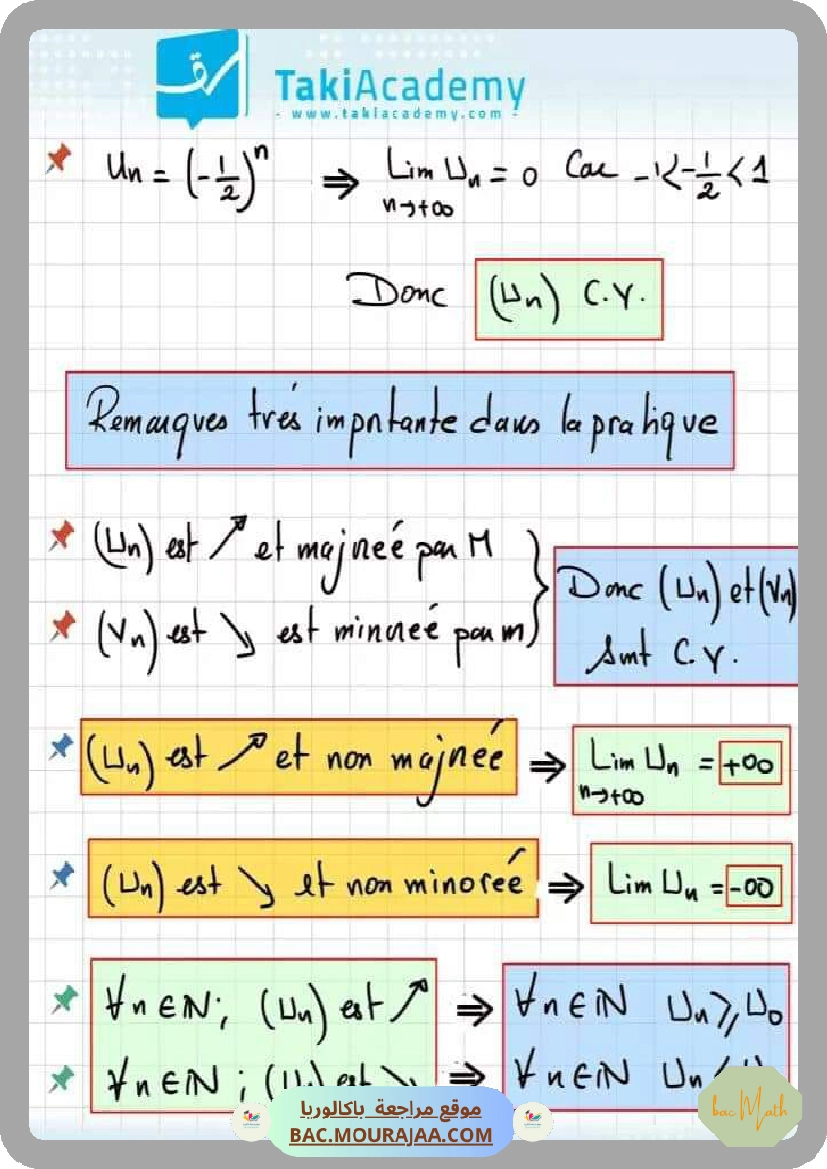 TakiAcademy
- www.takiacademy.com -
Un = (-1/2)^n ⇒ Lim Un = 0 Car -1<-1/2<1
n→+∞
Donc (Un) C.V.
Remarques trés importante dans la pratique
(Un) est ↗ et majoreé par M
(Vn) est ↘ est minoreé par m
Donc (Un) et (Vn)
sont C.V.
(Un) est ↗ et non majoreé ⇒ Lim Un = +∞
n→+∞
(Un) est ↘ et non minoreé ⇒ Lim Un = -∞
∀n∈ℕ; (Un) est ↗ ⇒ ∀n∈ℕ Un ⩾ U0
∀n∈ℕ; (Un) est ↘ ⇒ ∀n∈ℕ Un
موقع مراجعة باكالوريا
BAC.MOURAJAA.COM
bac Math